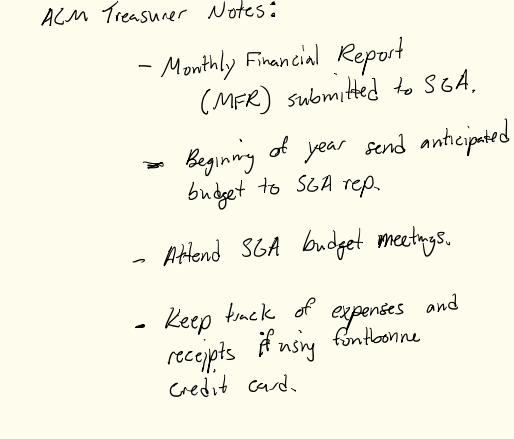 ACM Treasurer Notes:
- Monthly Financial Report
(MFR) submitted to SGA.
- Beginning of year send anticipated
budget to SGA rep.
- Attend SGA budget meetings.
- Keep track of expenses and
receipts if using fontbonne
credit card.